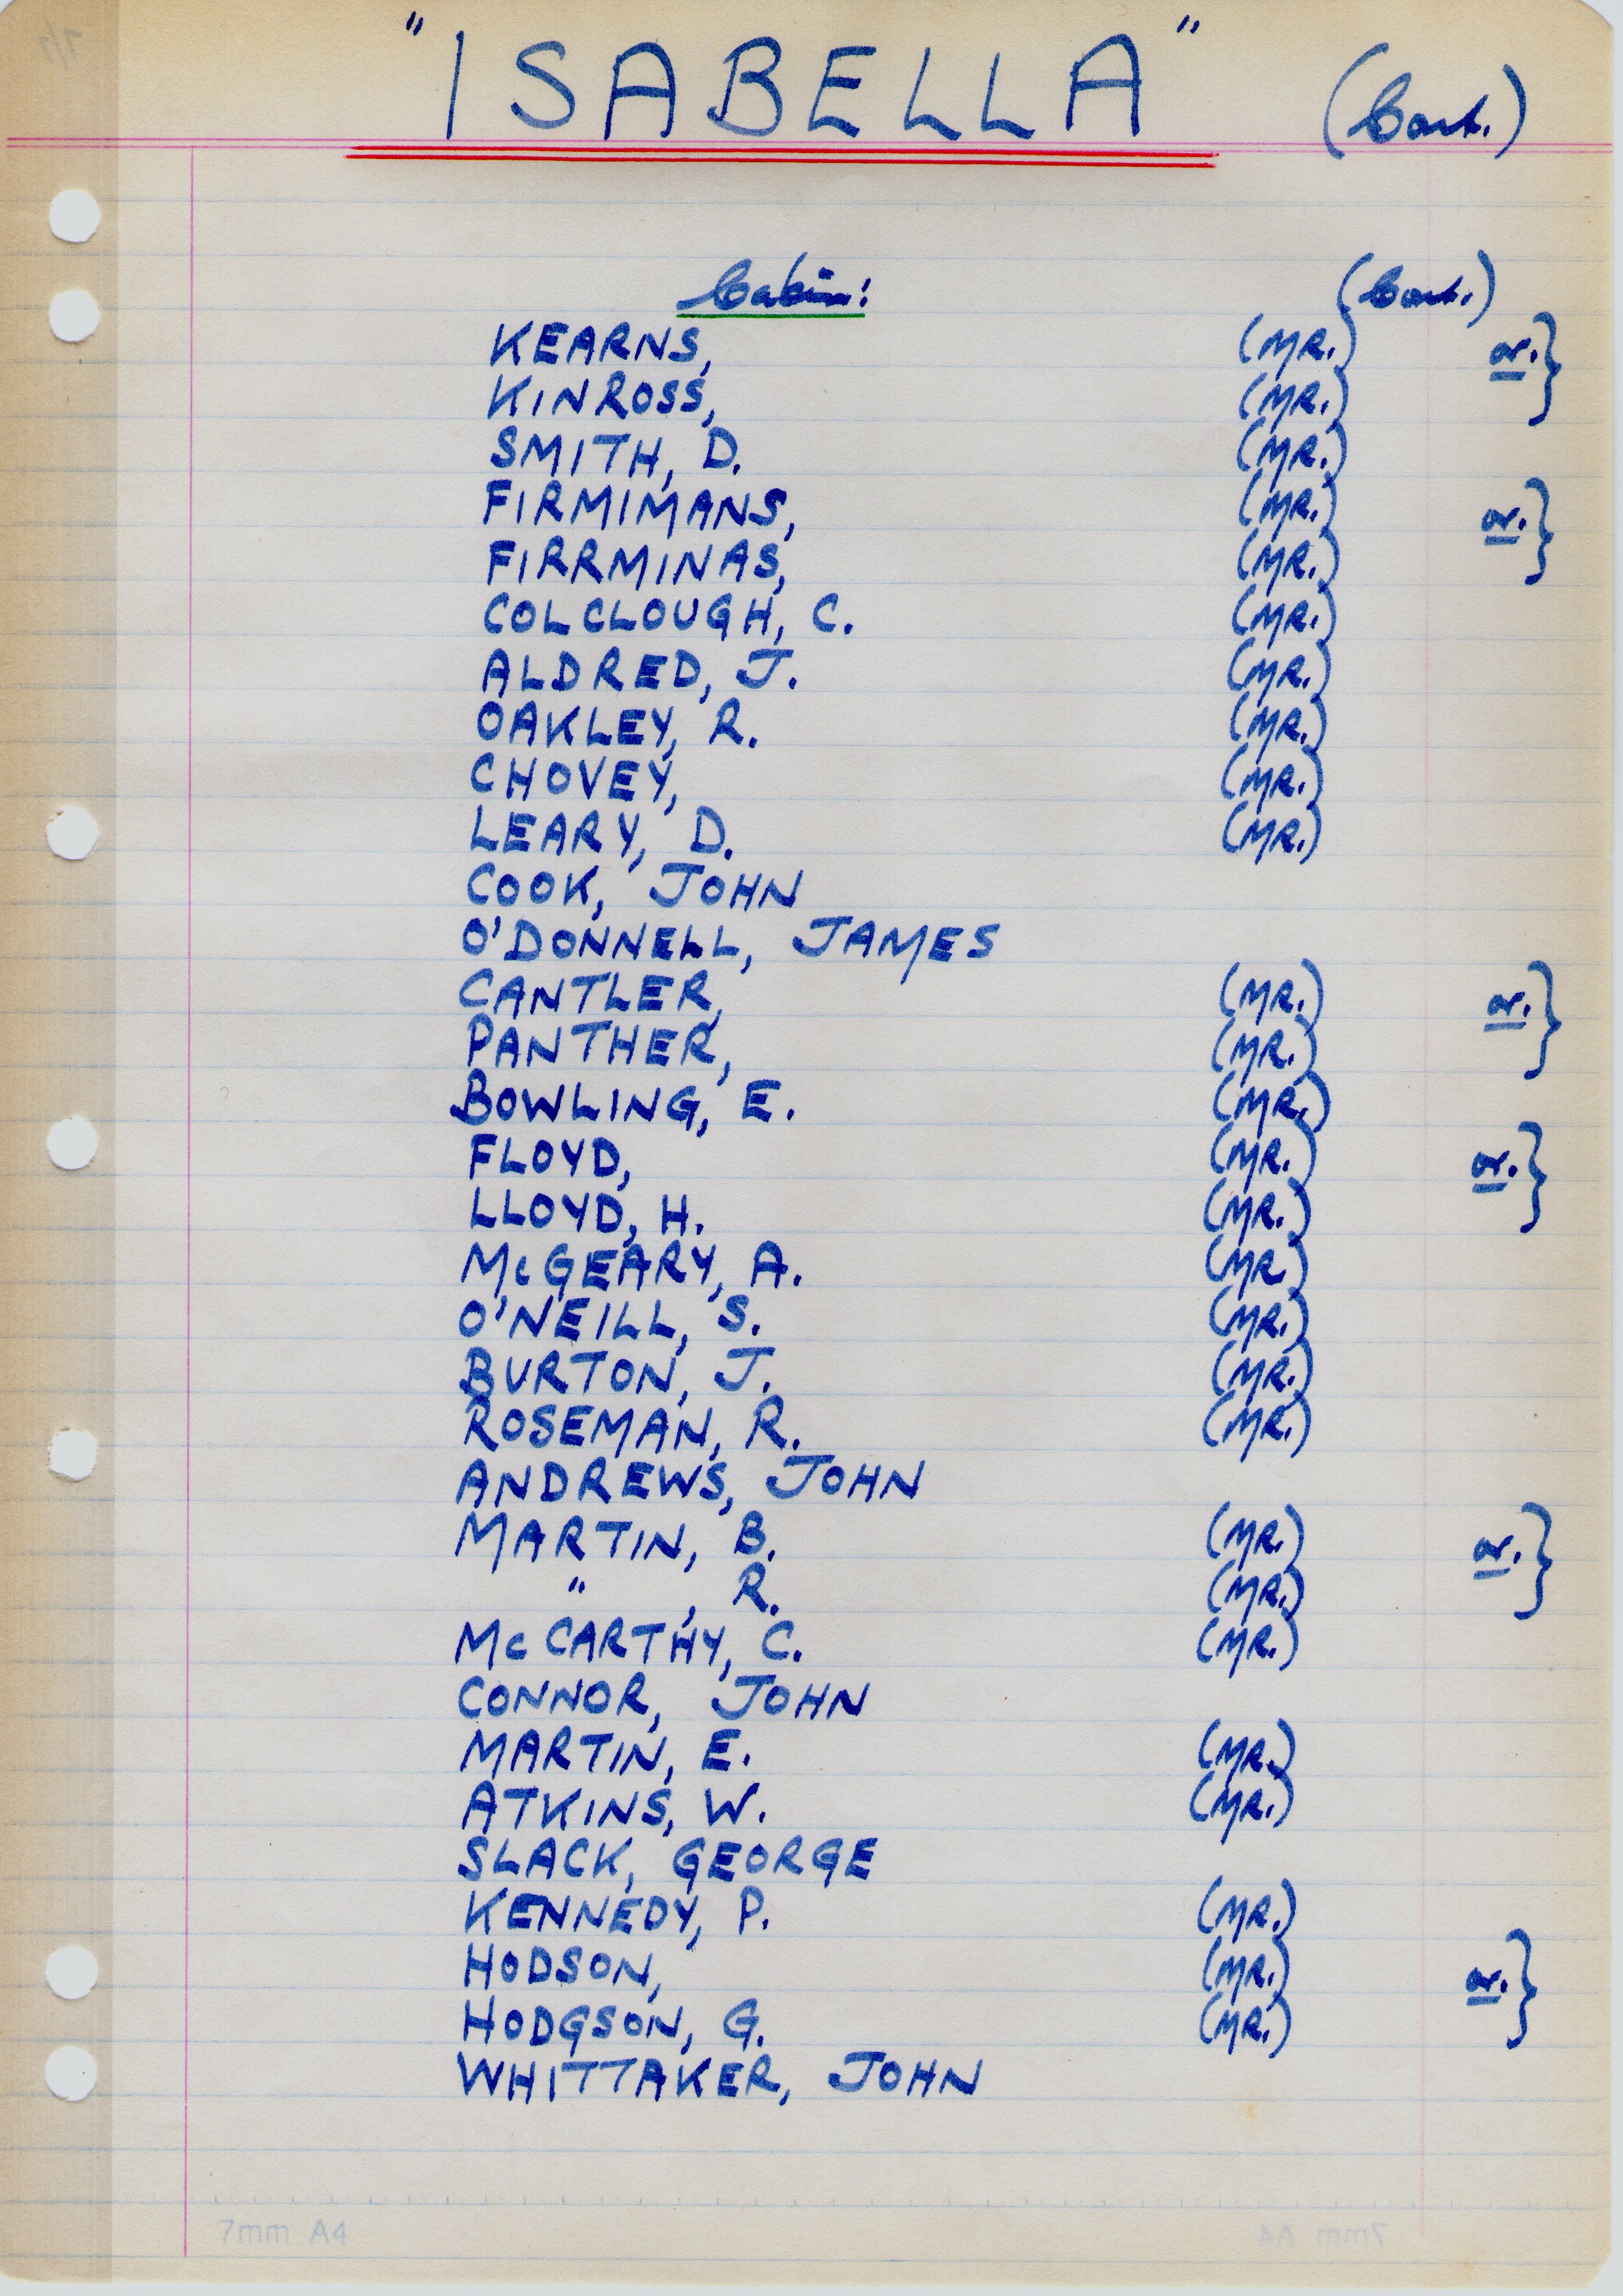 "ISABELLA" (Cont.)
Cabin: (Cont.)
KEARNS, (MR.) or.}
KINROSS, (MR.)
SMITH, D. (MR.)
FIRMIMANS, (MR.) or.}
FIRRMINAS, (MR.)
COLCLOUGH, C. (MR.)
ALDRED, J. (MR.)
OAKLEY, R. (MR.)
CHOVEY, (MR.)
LEARY, D. (MR.)
COOK, JOHN
O'DONNELL, JAMES
CANTLER, (MR.) or.}
PANTHER, (MR.)
BOWLING, E. (MR.)
FLOYD, (MR.) or.}
LLOYD, H. (MR.)
McGEARY, A. (MR.)
O'NEILL, S. (MR.)
BURTON, J. (MR.)
ROSEMAN, R. (MR.)
ANDREWS, JOHN
MARTIN, B. (MR.) or.}
" , R. (MR.)
McCARTHY, C. (MR.)
CONNOR, JOHN
MARTIN, E. (MR.)
ATKINS, W. (MR.)
SLACK, GEORGE
KENNEDY, P. (MR.)
HODSON, (MR.) or.}
HODGSON, G. (MR.)
WHITTAKER, JOHN
7mm A4